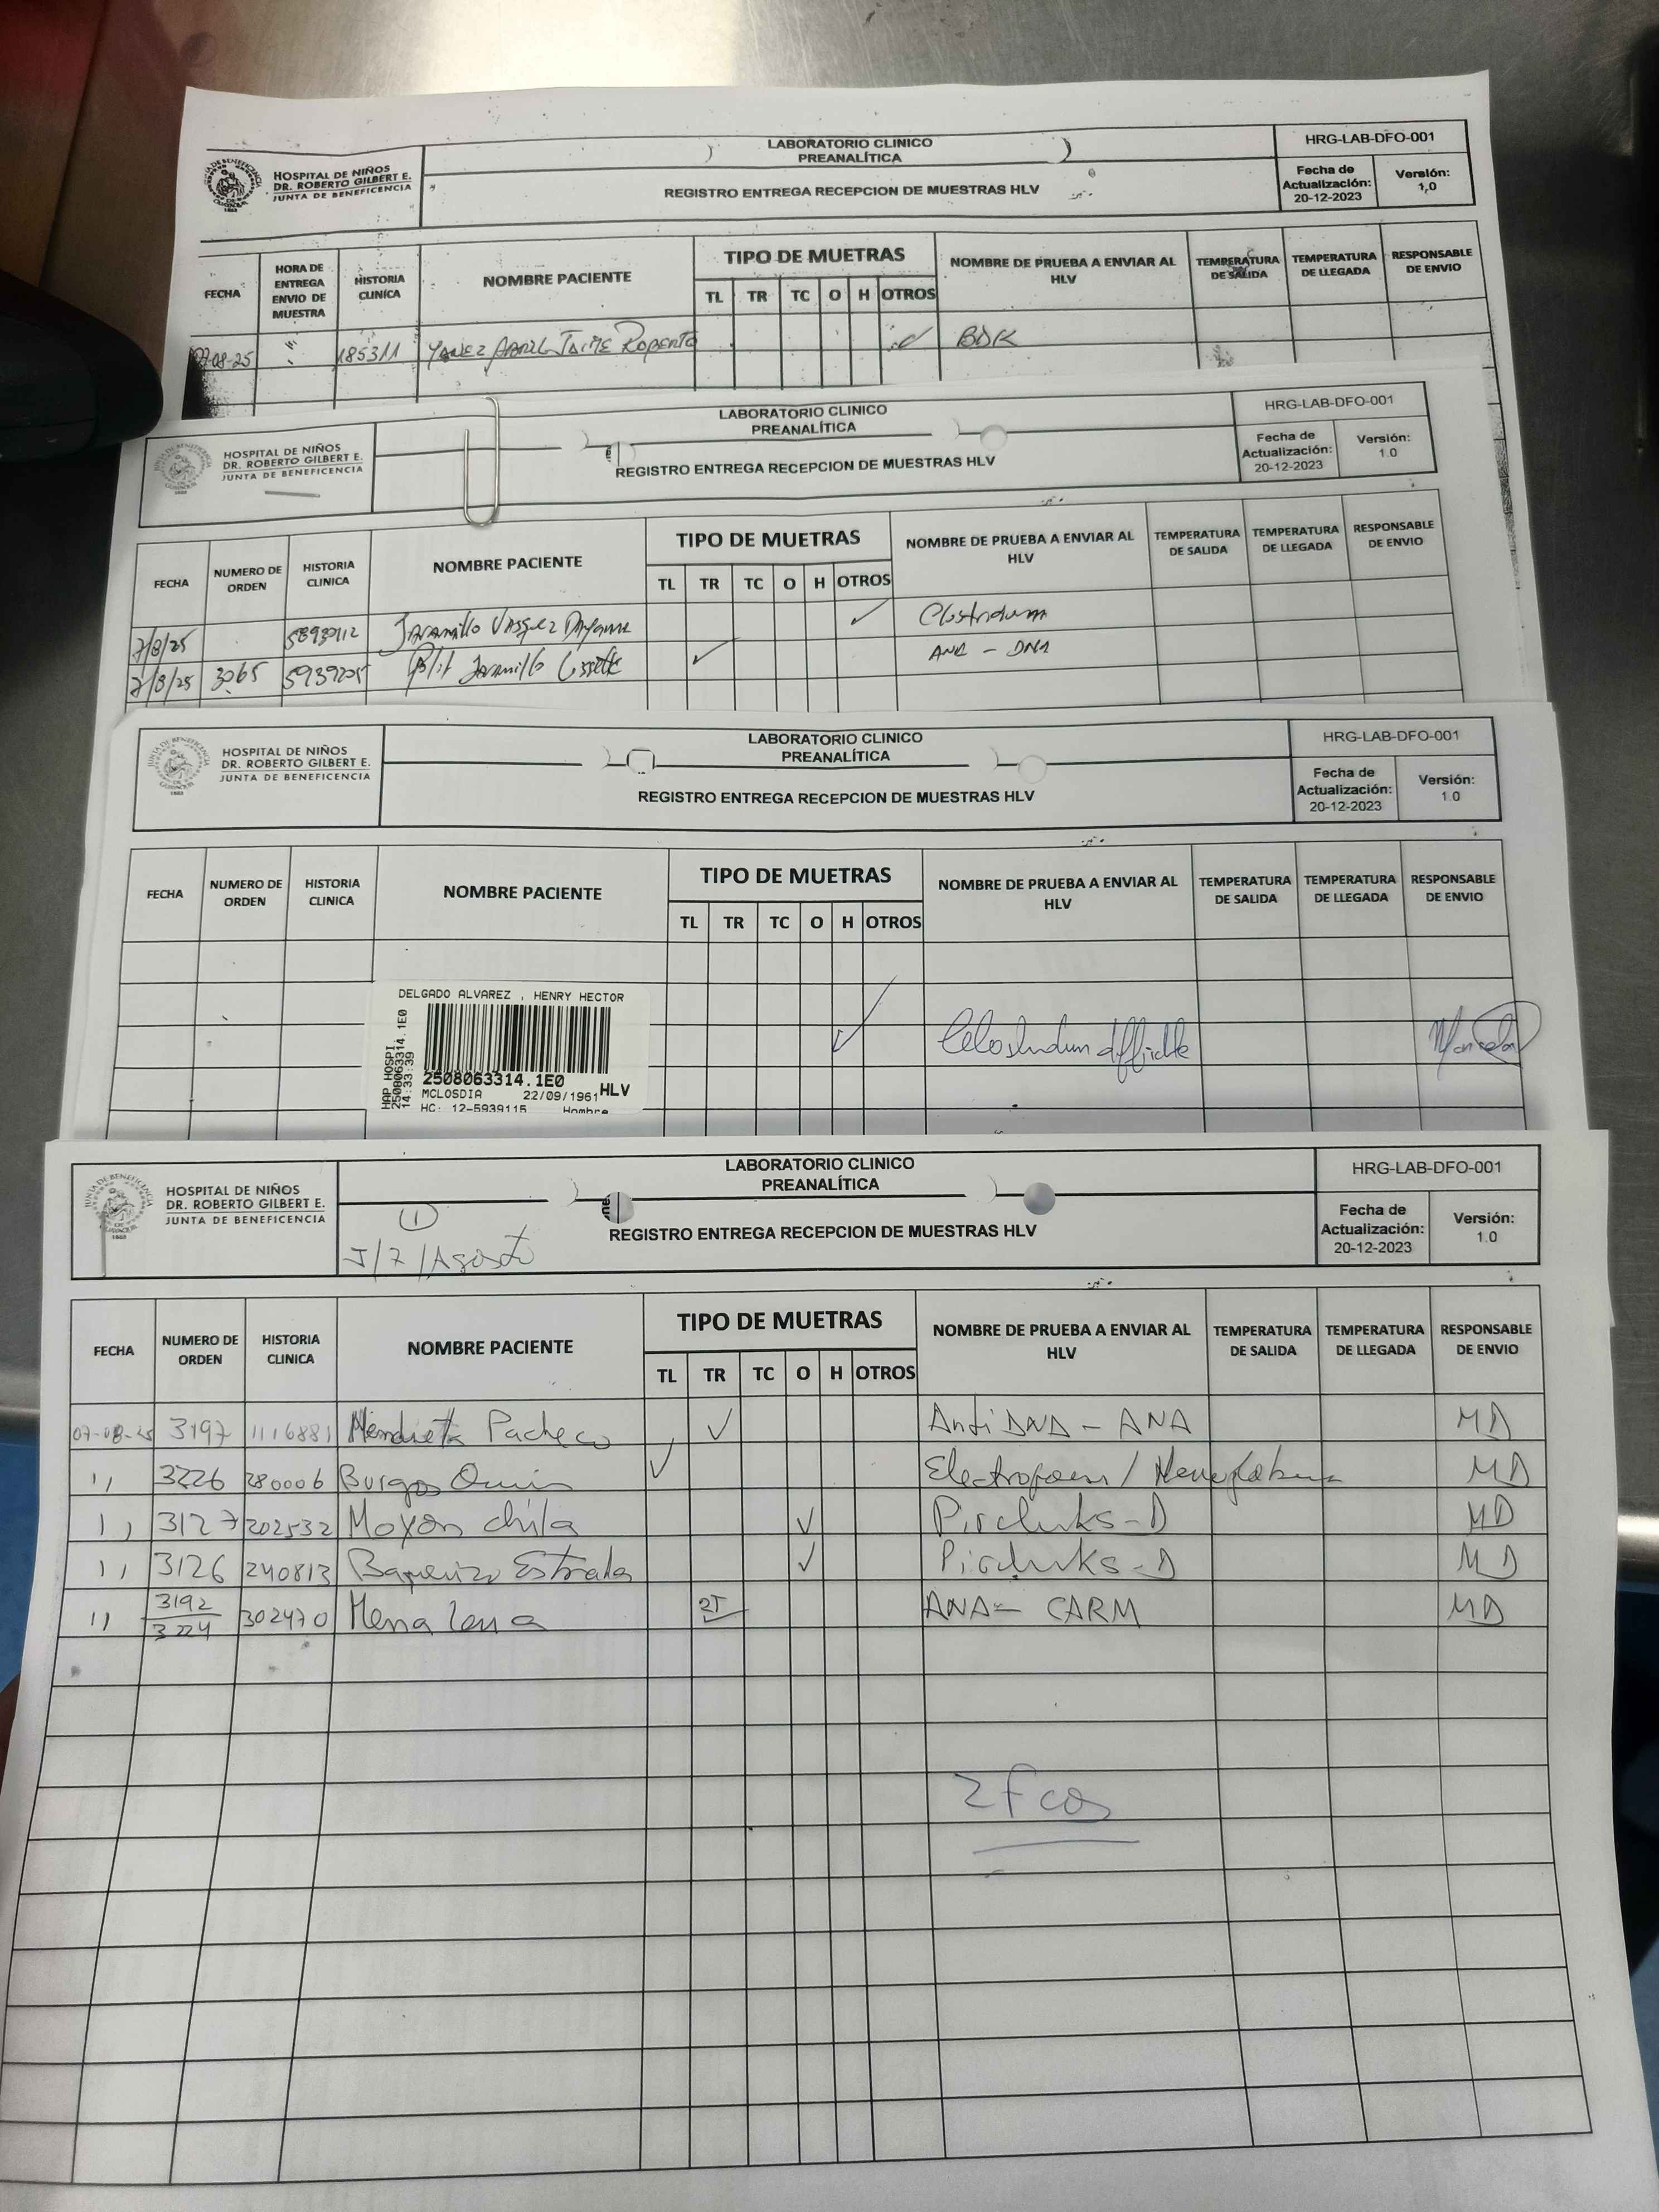 LABORATORIO CLINICO
PREANALÍTICA
HRG-LAB-DFO-001
HOSPITAL DE NIÑOS
DR. ROBERTO GILBERT E.
JUNTA DE BENEFICENCIA
REGISTRO ENTREGA RECEPCION DE MUESTRAS HLV
Fecha de Actualización: 20-12-2023
Versión: 1,0
FECHA HORA DE ENTREGA ENVIO DE MUESTRA HISTORIA CLINICA NOMBRE PACIENTE TIPO DE MUETRAS NOMBRE DE PRUEBA A ENVIAR AL HLV TEMPERATURA DE SALIDA TEMPERATURA DE LLEGADA RESPONSABLE DE ENVIO
TL TR TC O H OTROS
07-08-25 " 185311 Yanez Abril Jaime Roberto ✓ BDK
LABORATORIO CLINICO
PREANALÍTICA
HRG-LAB-DFO-001
HOSPITAL DE NIÑOS
DR. ROBERTO GILBERT E.
JUNTA DE BENEFICENCIA
REGISTRO ENTREGA RECEPCION DE MUESTRAS HLV
Fecha de Actualización: 20-12-2023
Versión: 1.0
FECHA NUMERO DE ORDEN HISTORIA CLINICA NOMBRE PACIENTE TIPO DE MUETRAS NOMBRE DE PRUEBA A ENVIAR AL HLV TEMPERATURA DE SALIDA TEMPERATURA DE LLEGADA RESPONSABLE DE ENVIO
TL TR TC O H OTROS
7/8/25 Jaramillo Vasquez ✓ Clostridum
7/8/25 3065 5939205 Jaramillo Lissette ✓ ANA - DNA
LABORATORIO CLINICO
PREANALÍTICA
HRG-LAB-DFO-001
HOSPITAL DE NIÑOS
DR. ROBERTO GILBERT E.
JUNTA DE BENEFICENCIA
REGISTRO ENTREGA RECEPCION DE MUESTRAS HLV
Fecha de Actualización: 20-12-2023
Versión: 1.0
FECHA NUMERO DE ORDEN HISTORIA CLINICA NOMBRE PACIENTE TIPO DE MUETRAS NOMBRE DE PRUEBA A ENVIAR AL HLV TEMPERATURA DE SALIDA TEMPERATURA DE LLEGADA RESPONSABLE DE ENVIO
TL TR TC O H OTROS
DELGADO ALVAREZ , HENRY HECTOR
HAP HOSPI
2508063314.1E0
14:33:39
2508063314.1E0 HLV
MCLOSDIA 22/09/1961
HC: 12-5939115 Hombre
✓ Clostridum difficile
LABORATORIO CLINICO
PREANALÍTICA
HRG-LAB-DFO-001
HOSPITAL DE NIÑOS
DR. ROBERTO GILBERT E.
JUNTA DE BENEFICENCIA
1
J/7/Agosto
REGISTRO ENTREGA RECEPCION DE MUESTRAS HLV
Fecha de Actualización: 20-12-2023
Versión: 1.0
FECHA NUMERO DE ORDEN HISTORIA CLINICA NOMBRE PACIENTE TIPO DE MUETRAS NOMBRE DE PRUEBA A ENVIAR AL HLV TEMPERATURA DE SALIDA TEMPERATURA DE LLEGADA RESPONSABLE DE ENVIO
TL TR TC O H OTROS
07-08-25 3197 1116881 Mendieta Pacheco ✓ Anti DNA - ANA MD
11 3226 280006 Burgos ✓ MD
11 3127 202532 Moyon chila ✓ MD
11 3126 240813 Baquerizo Estrada ✓ MD
11 3192 3224 302470 Mena 2T ANA - CARM MD
2 Fcos